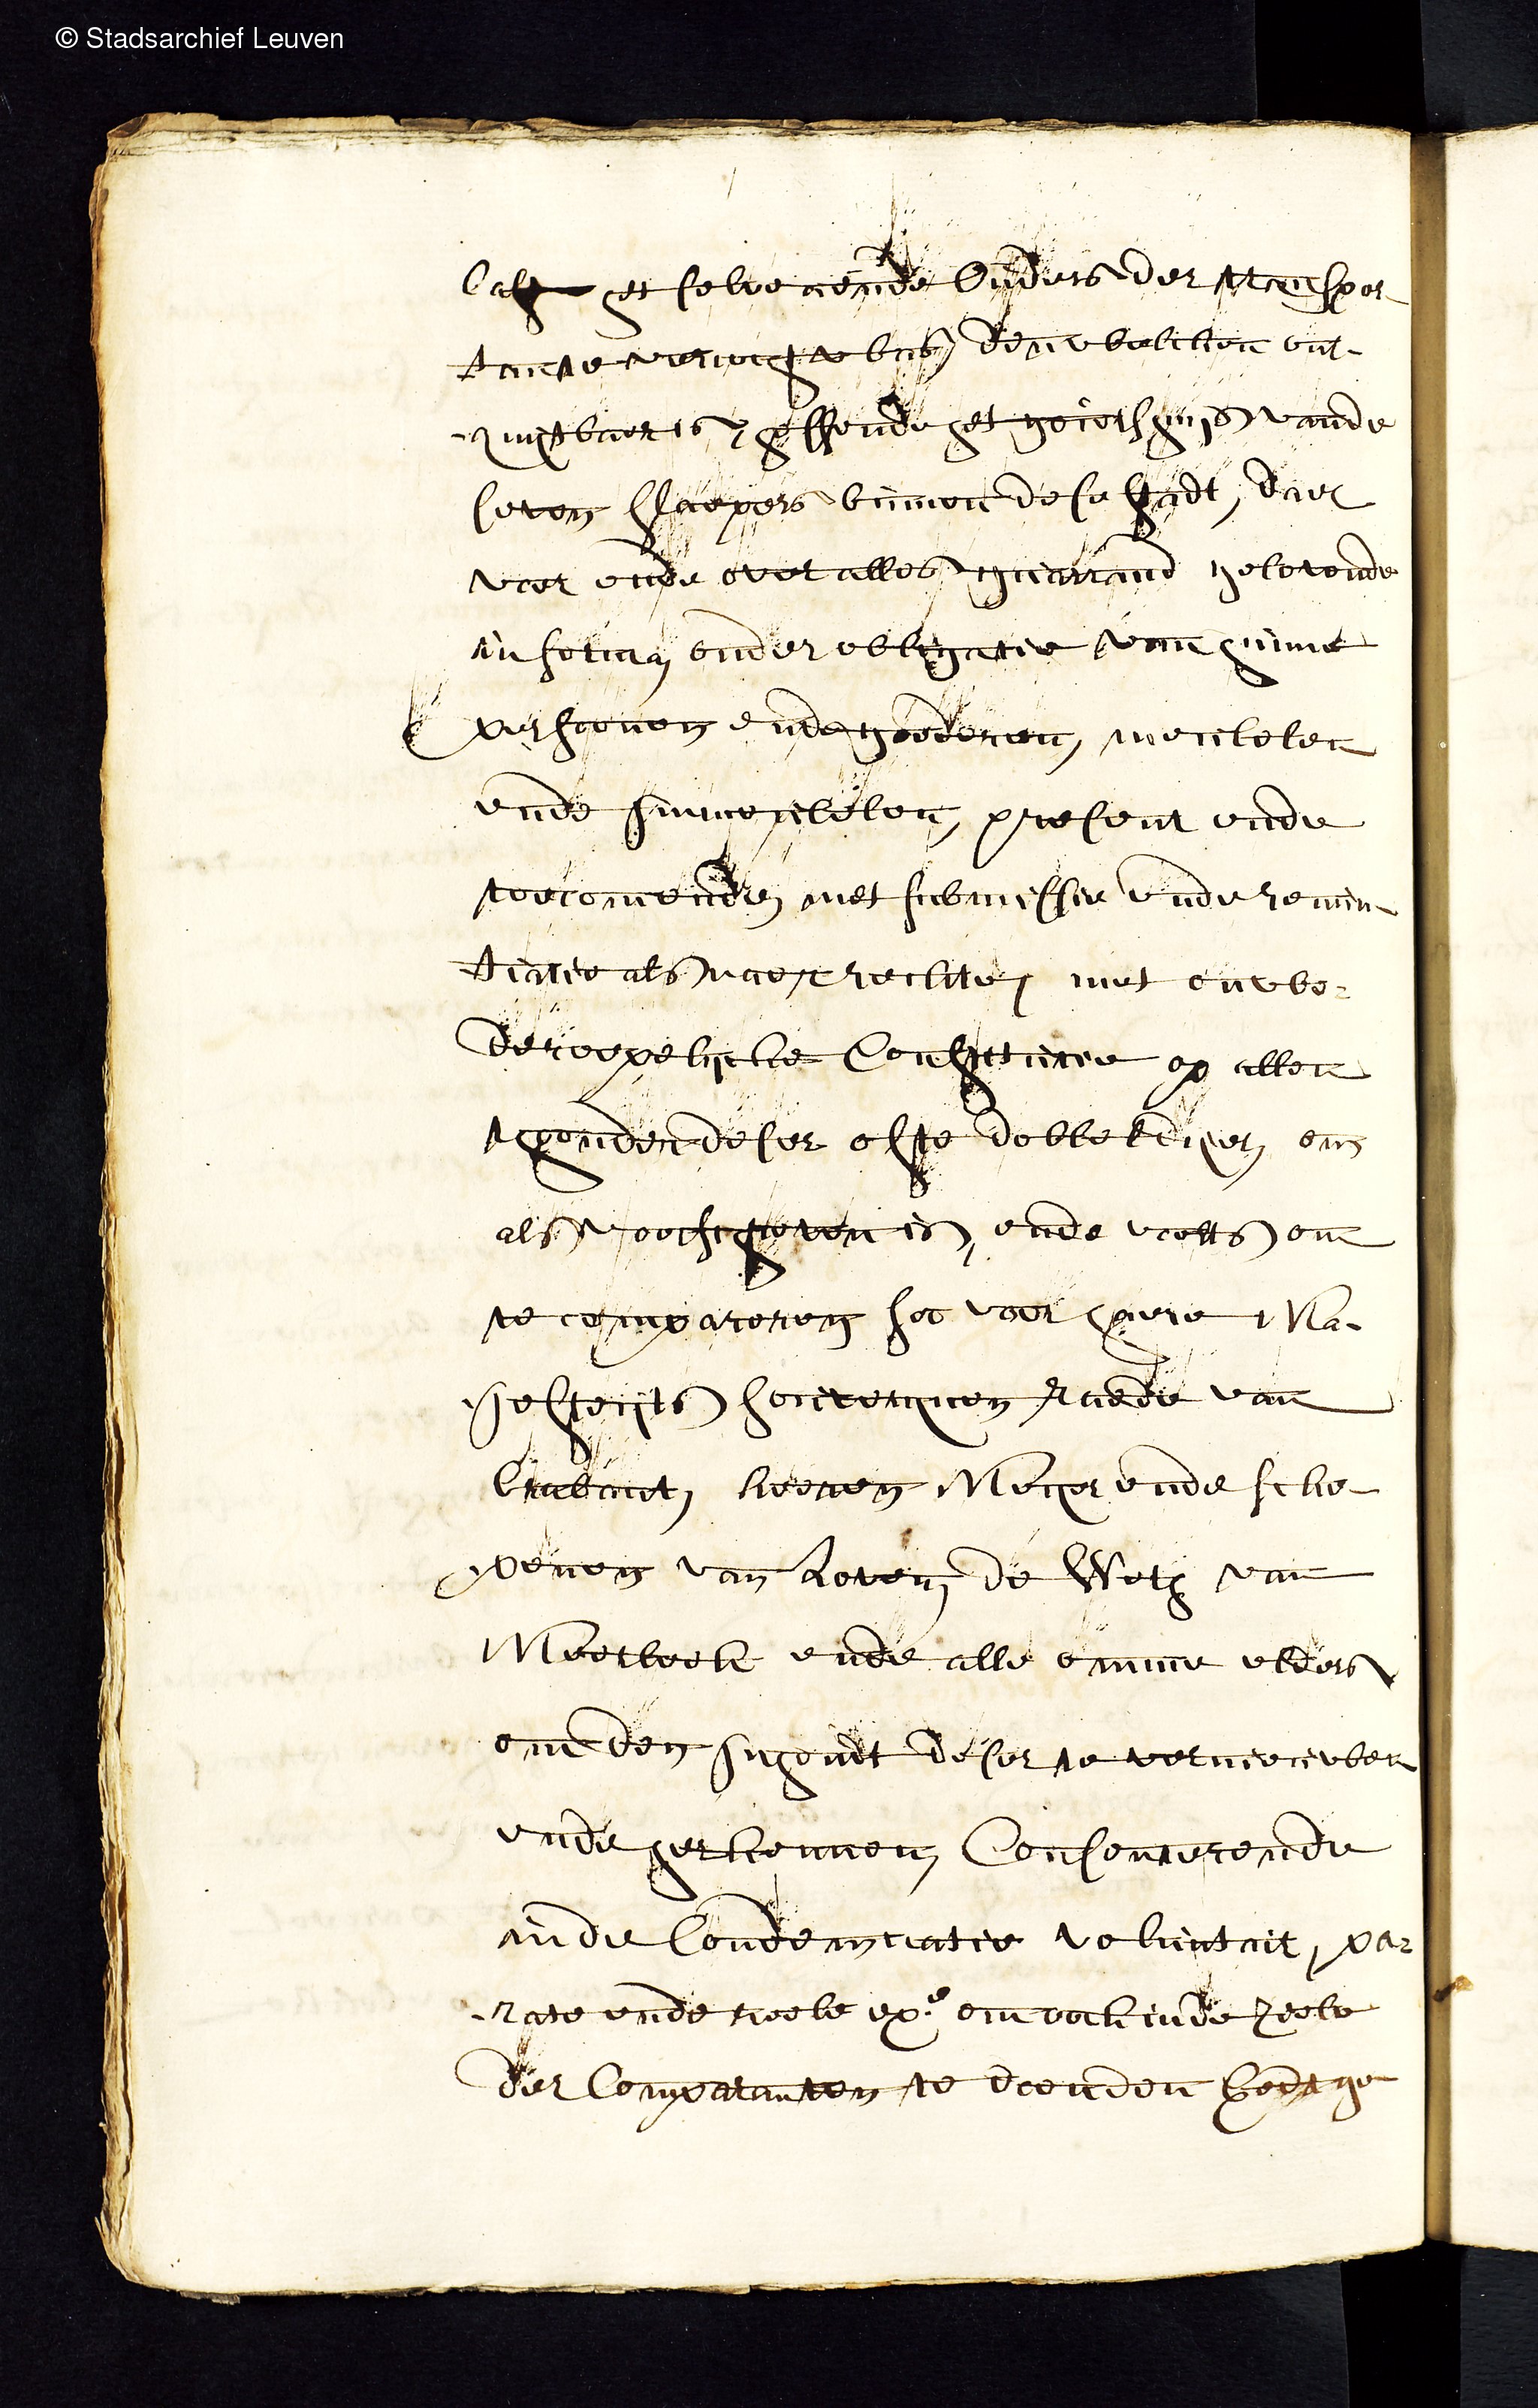 © Stadsarchief Leuven
last het selve neinde Ouders der transpor-
tante verwecht was, denwelcken out-
quytbaer is, effende het godtshuys vande
seven slaepers binnen dese stadt, daer
voor ende over alles guarrand gelovende
in forma onder obligatie van hunne
persoonen ende goederen, meubelen
ende immeubelen, present ende
toecomende, met submissie ende renun-
tiatie als naer rechte, met onwe-
deroepelycke Constitutie op allen
thoonder deser ofte dobbel dyer, om
als vooschreven is, ende voorts om
te compareren soo voor haere Ma-
jesteyts souverynen Raede van
brabant, heeren Meyer ende sche-
penen van Loven, de Weth van
Meerbeek ende alle omme elders
om den inhoudt deser te vernieuwen
ende herkennen, Consenterende
inde Condemnatie voluntair, par-
rate ende reele exe. om oock inde Reele
der Comparanten te